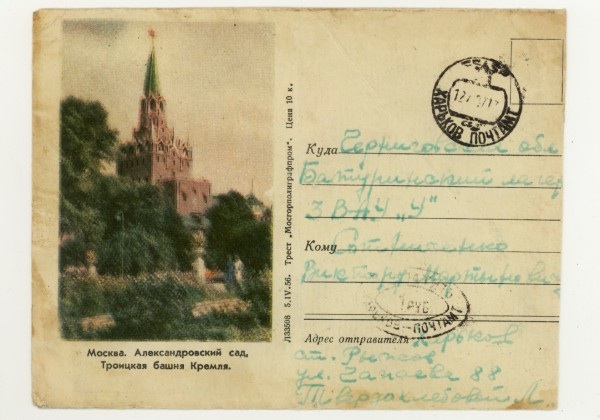 Москва. Александровский сад,
Троицкая башня Кремля.
Л33508 5.IV.56. Трест „Мосгорполиграфпром“. Цена 10 к.
ХАРЬКОВ ПОЧТАМТ
Куда Черниговская обл
Батуринский лагер
ЗВАУ „У“
Кому
Виктору Мартынович
1 РУБ
ПОЧТАМТ
Адрес отправителя Харьков
ст. Рыжов
ул. Чапаева 88